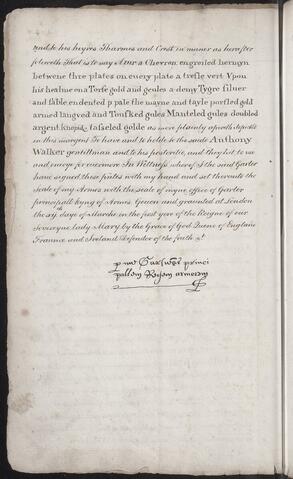 and to his heyres Tharmes and Crest in maner as hereafter
foloweth That is to say Azur a Chevron engroiled hermyn
betwene thre plates on every plate a trefle vert Upon
his healme on a Torse gold and geules a demy Tygre silver
and sable endented p pale the mayne and tayle porfled gold
armed langued and Toufked gules Manteled gules doubled
argent tasseled golde as more plainly apereth depicte
in this margent To have and to holde to the saide Anthony
Walker gentillman and to his posteritie, and they hit to use
and enioye for evermore In Wittness whereof I the said Garter
have signed these pñtes with my hand and set thereunto the
Seale of my Armes with the seale of myne office of Garter
principall kyng of Armes Geven and graunted at London
the xijth day of Marche in the first yere of the Reigne of our
Sovereigne lady Mary by the Grace of God Quene of England
Fraunce and Ireland Defender of the faith &c
p me Garter princi
pallem Regem armorum